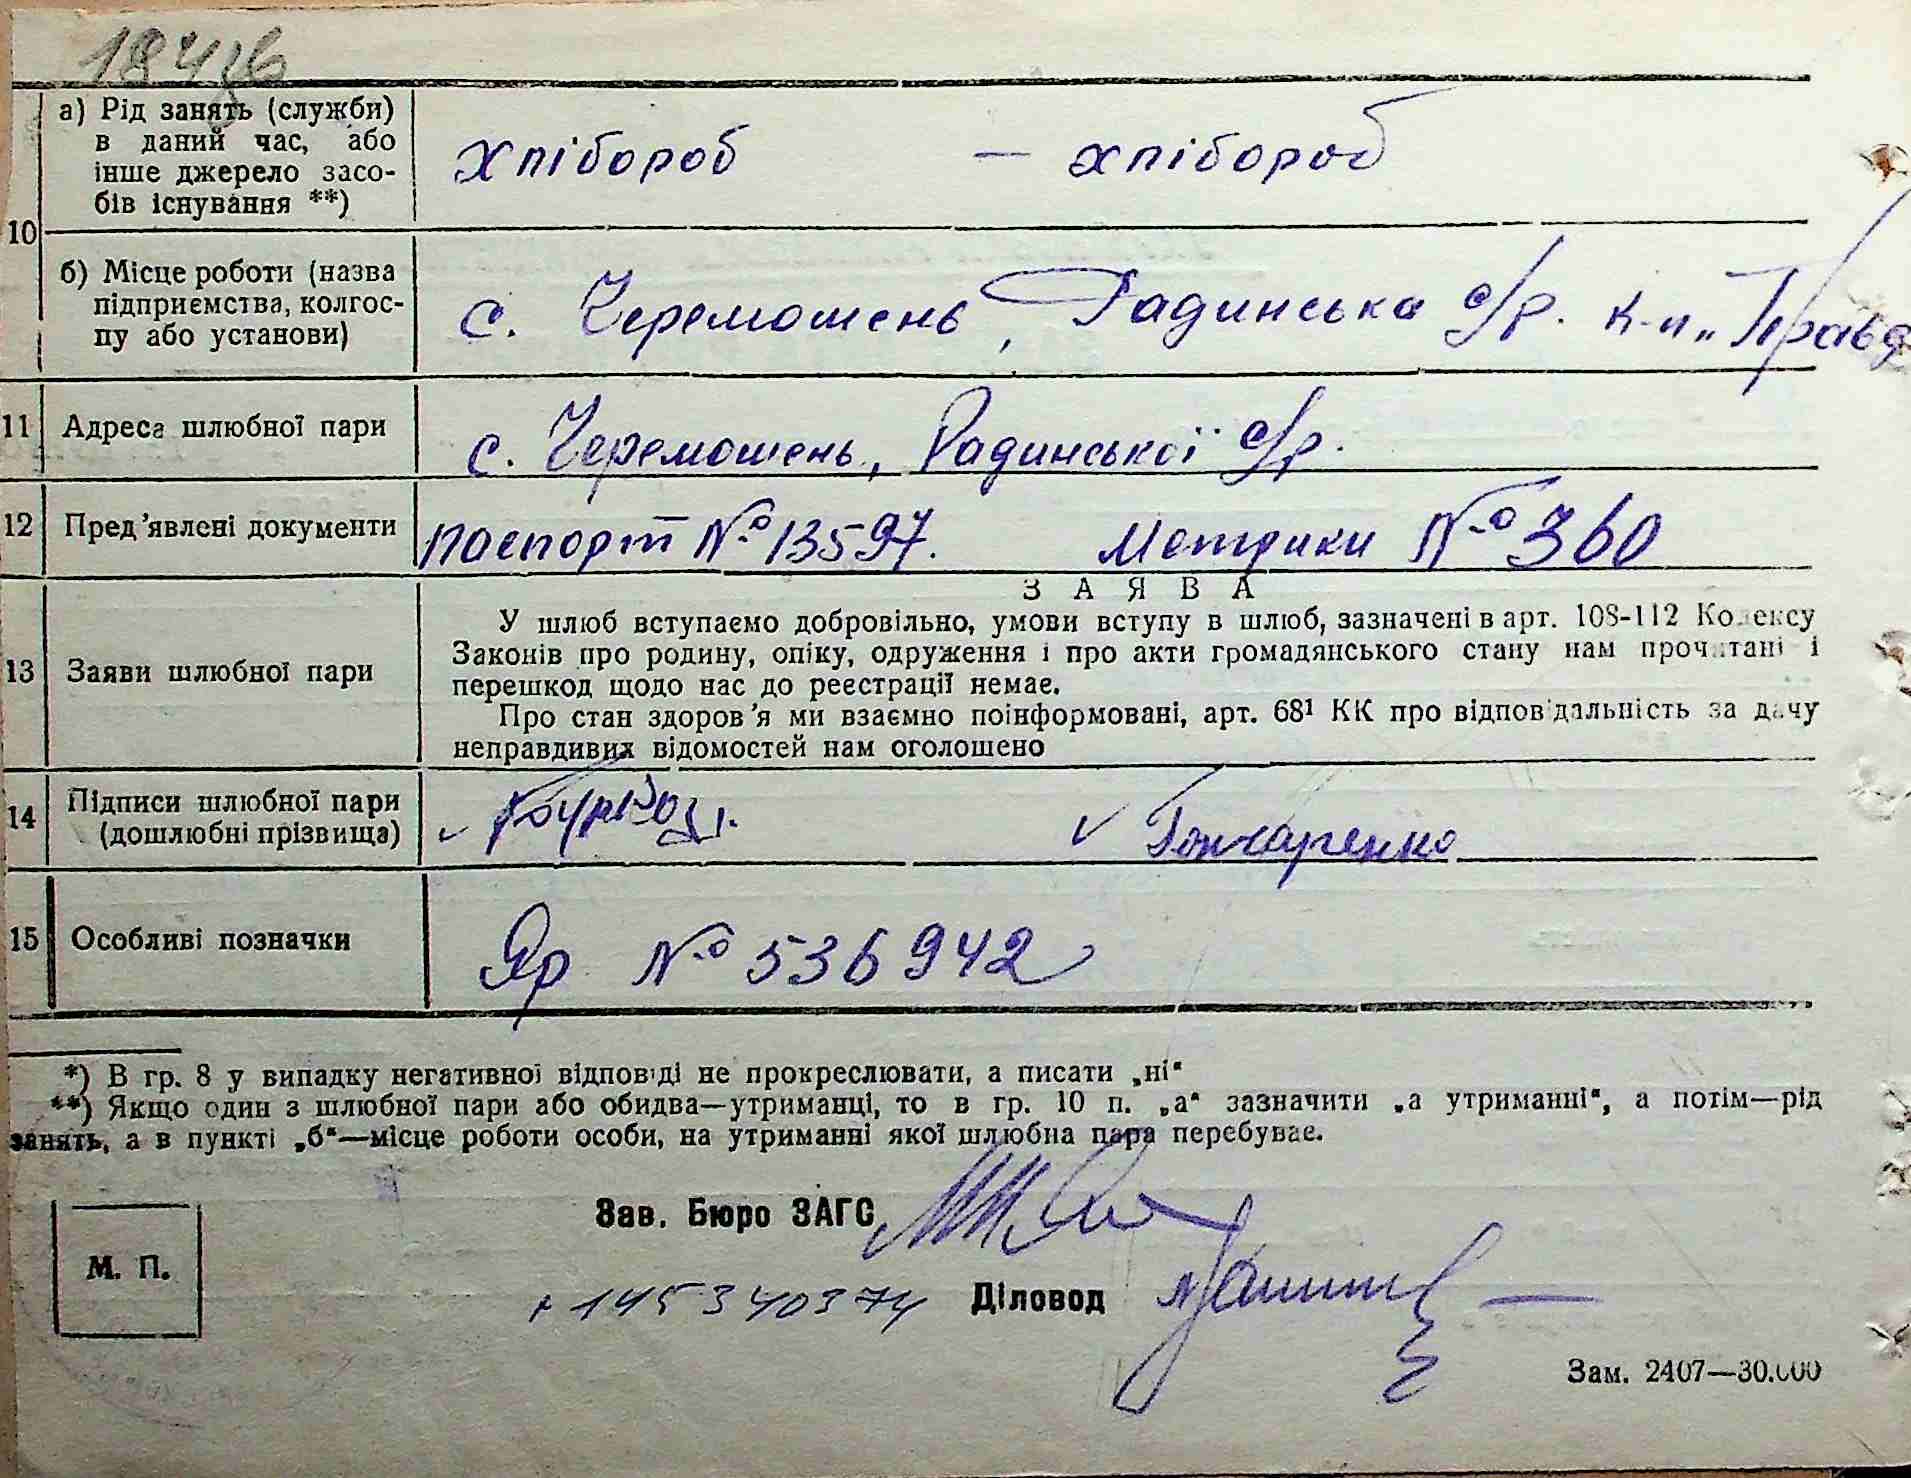 а) Рід занять (служби) в даний час, або інше джерело засо-бів існування **)
хпібороб — хпібороб
10
б) Місце роботи (назва підприємства, колгос-пу або установи)
с. Черемошень, Радинська с/р. к-п „Правда
11 Адреса шлюбної пари с. Черемошень, Радинської с/р.
12 Пред'явлені документи паспорт № 13597. Метрики № 360
З А Я В А
13 Заяви шлюбної пари
У шлюб вступаємо добровільно, умови вступу в шлюб, зазначені в арт. 108-112 Кодексу
Законів про родину, опіку, одруження і про акти громадянського стану нам прочитані і
перешкод щодо нас до реєстрації немає.
Про стан здоров'я ми взаємно поінформовані, арт. 68¹ КК про відповідальність за дачу
неправдивих відомостей нам оголошено
14 Підписи шлюбної пари (дошлюбні прізвища) Гончаренко
15 Особливі позначки Яр № 536942
*) В гр. 8 у випадку негативної відповіді не прокреслювати, а писати „ні"
**) Якщо один з шлюбної пари або обидва—утриманці, то в гр. 10 п. „а" зазначити „а утриманні", а потім—рід
занять, а в пункті „б"—місце роботи особи, на утриманні якої шлюбна пара перебуває.
Зав. Бюро ЗАГС
М. П.
145340374 Діловод
Зам. 2407—30.000